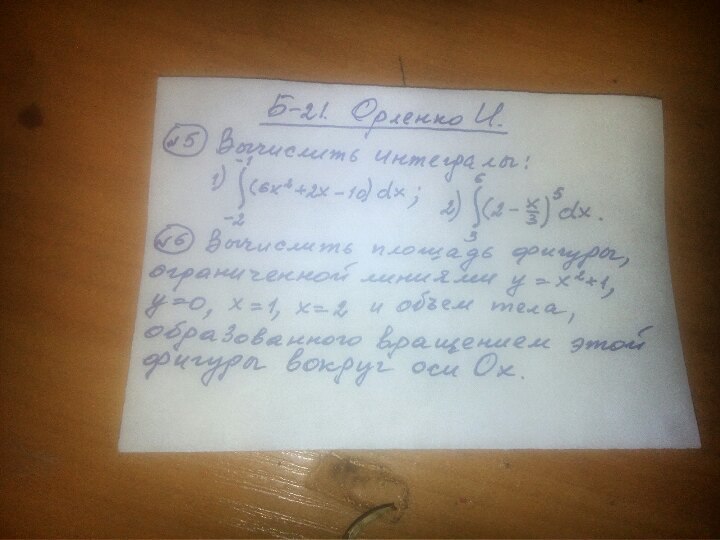 Б-21. Орленко И.
№5 Вычислить интегралы:
1) ∫₋₂⁻¹ (6x²+2x-10) dx; 2) ∫₃⁶ (2 - x/3)⁵ dx.
№6 Вычислить площадь фигуры,
ограниченной линиями y = x²+1,
y=0, x=1, x=2 и объем тела,
образованного вращением этой
фигуры вокруг оси Ox.